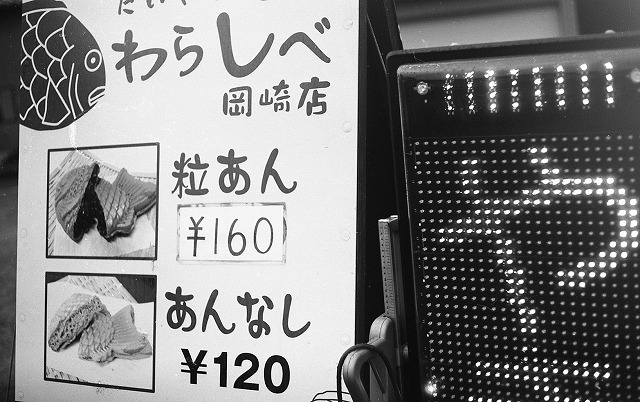 わらしべ
岡崎店
粒あん
¥160
あんなし
¥120
や